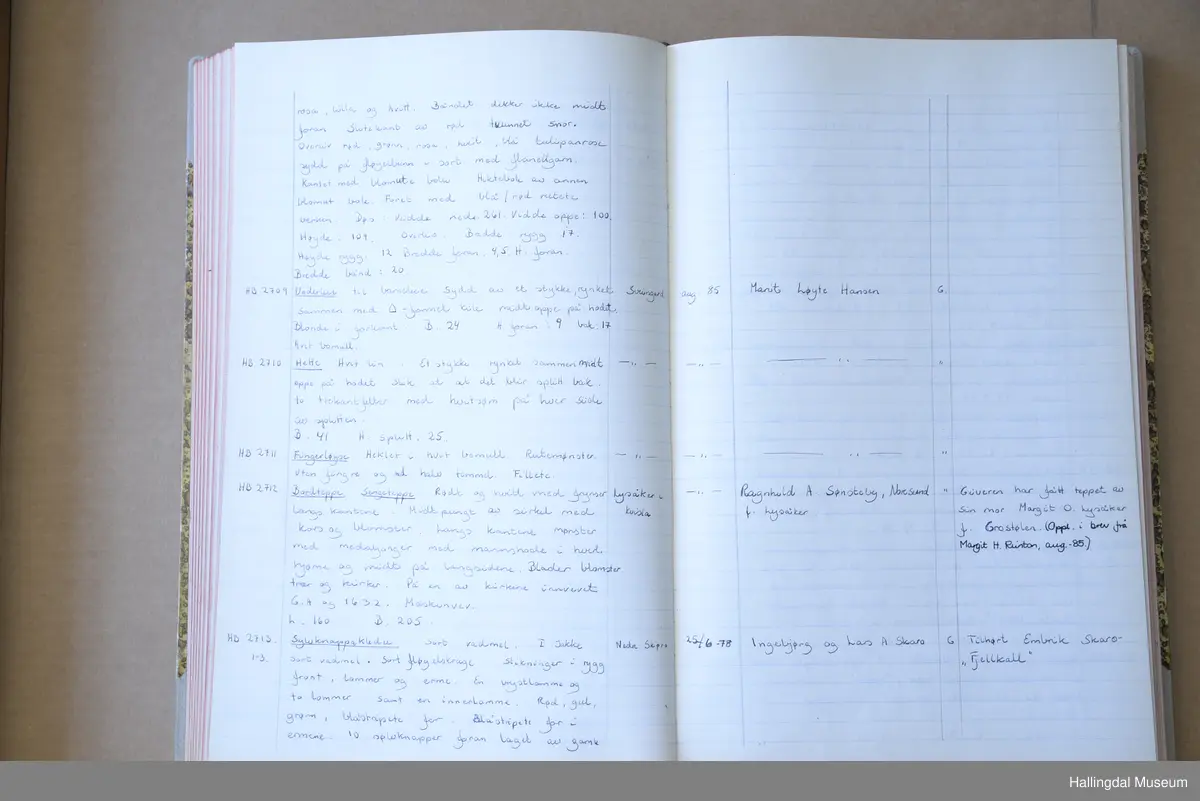 rosa, lilla og hvitt. Båndet dekker ikke midt
foran Slutekant av rød tvunnet snor.
rød, grønn, rosa, hvit, blå tulipanrose
sydd på fløyelsbunn i sort med flanellgarn.
Kantet med blomute bake av annen
blomut bak. Foret med blå/rød rutete
verken. Vidde nede. 261. Vidde oppe: 100.
Høyde. 109. Bredde rygg 17.
Høyde rygg: 12 Bredde foran. 4,5. H. foran.
Bredde bånd: 20
HB 2709 Underlue til barnelue Sydd av et stykke, rynket Sveingard aug 85 Marit Løyte Hansen G.
sammen med -formet kile midt oppe på hodet.
Blonde i forkant B. 24 H foran: 9 bak: 17
Hvit bomull.
HB 2710 Hette Hvit lin. Et stykke rynket sammen midt — ,, — — ,, — — ,, — ,,
oppe på hodet slik at det blir splitt bak.
to trekantfelter med hvitsøm på hver side
av splitten.
B. 41 H. splitt. 25.
HB 2711 Fingerløyse Hekler i hvit bomull. Rutemønster — ,, — — ,, — — ,, — ,,
uten fingre og halv tommel. Fillete.
HB 2712 Bordteppe Sengeteppe Rødt og hvitt med frynser Lysåker i — ,, — Ragnhold A Sønsteby, Noresund ,, Giveren har fått teppet av
langs kantene. Midtpungt av sirkel med f. Lysåker sin mor Margit O. Lysåker
kors og blomster langs kantene mønster f. Grostølen. (Oppl. i brev frå
med medaljonger med mannshode i hvert Margit H. Runton, aug.-85.)
hjørne og midt på langsidene. Blader blomster
trær og kirker. På en av kirkene innvevet
G.A og 1632. Maskinvev.
L. 160 B. 205.
HB 2713. Sylvknappaklede Sort vadmel. I Jakke Nedre 25/6-78 Ingebjørg og Lars A. Skaro G Tilhørt Embrik Skaro-
1-3. sort vadmel. Sort fløyelskrage Stikninger i rygg „Fjellkall“
front, lommer og erme. En brystlomme og
to lommer samt en innerlomme. Rød, gul,
grønn, blåstripete for. Blåstripete for i
ermene. 10 sølvknapper foran laget av gamle
Hallingdal Museum